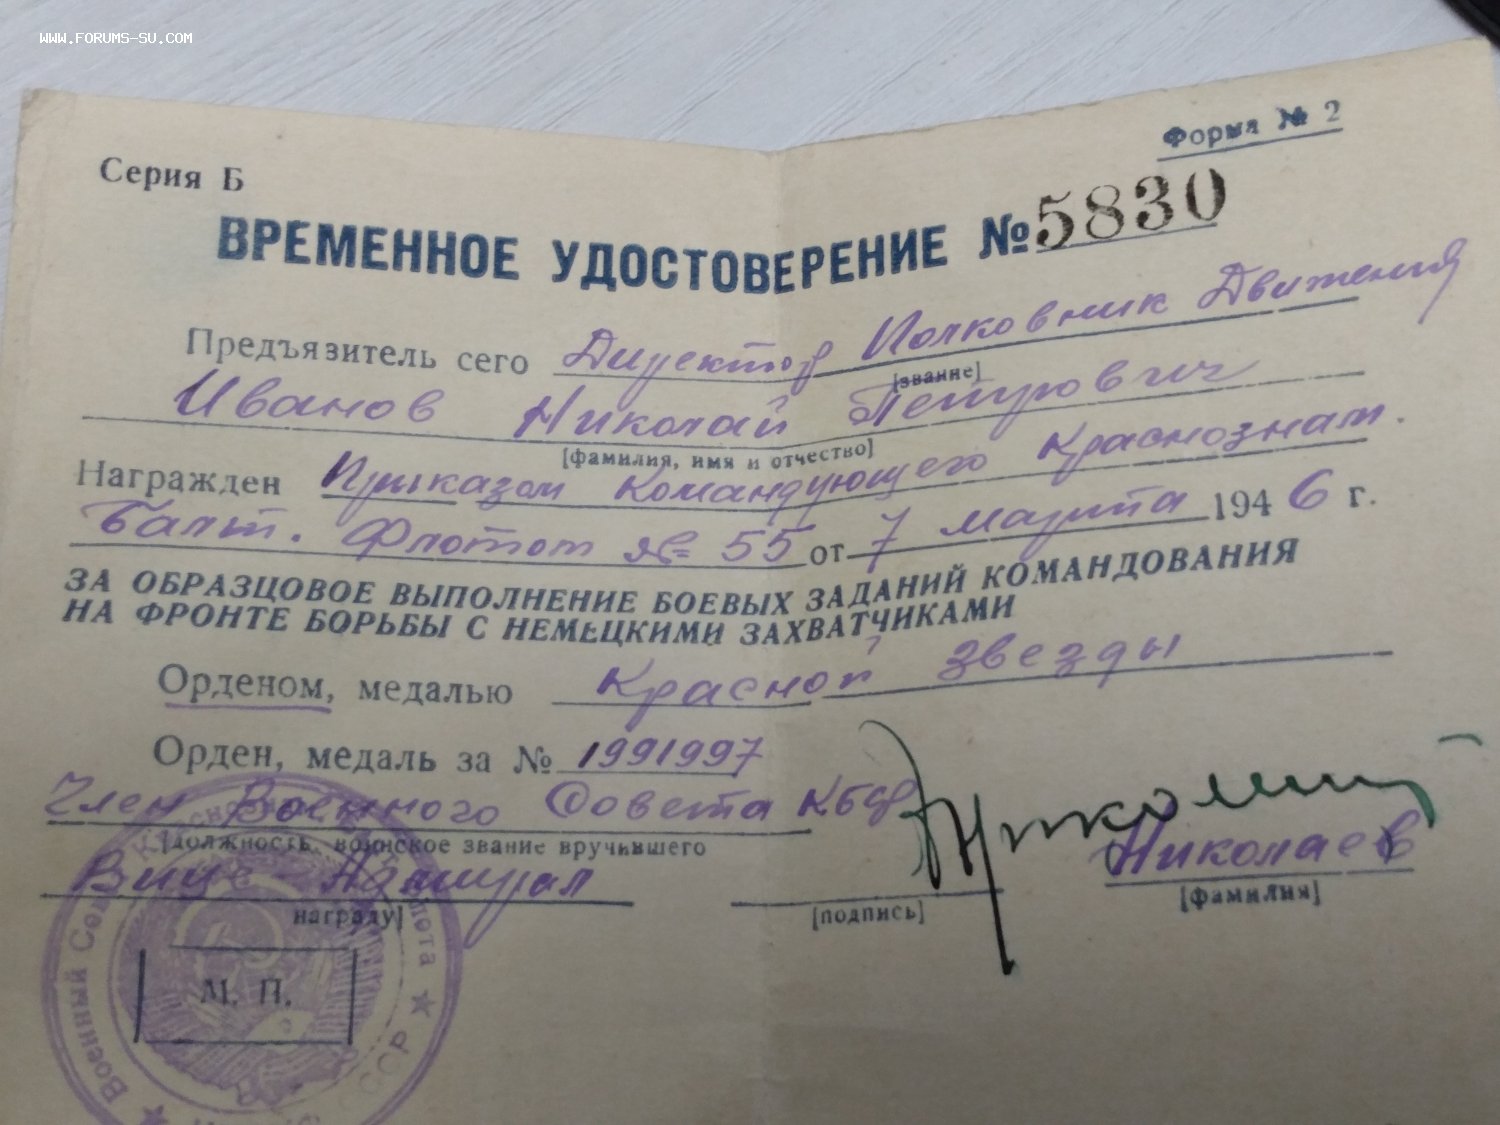 WWW.FORUMS-SU.COM
Форма № 2
Серия Б
ВРЕМЕННОЕ УДОСТОВЕРЕНИЕ № 5830
Предъязитель сего Директор Полковник Движения
[звание]
Иванов Николай Петрович
[фамилия, имя и отчество]
Награжден Приказом Командующего Краснознам.
Балт. Флотом № 55 от 7 марта 1946 г.
ЗА ОБРАЗЦОВОЕ ВЫПОЛНЕНИЕ БОЕВЫХ ЗАДАНИЙ КОМАНДОВАНИЯ
НА ФРОНТЕ БОРЬБЫ С НЕМЕЦКИМИ ЗАХВАТЧИКАМИ
Орденом, медалью Красной звезды
Орден, медаль за № 1991997
Член Военного Совета КБФ
[должность, воинское звание вручившего
Вице-Адмирал Николаев
награду] [подпись] [фамилия]
М. П.
Военный Сов
флота ★ СССР